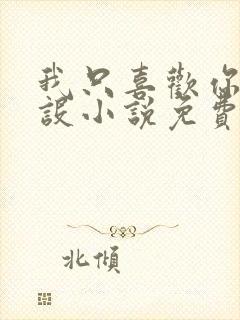 我只喜歡你
設小說免費
北傾